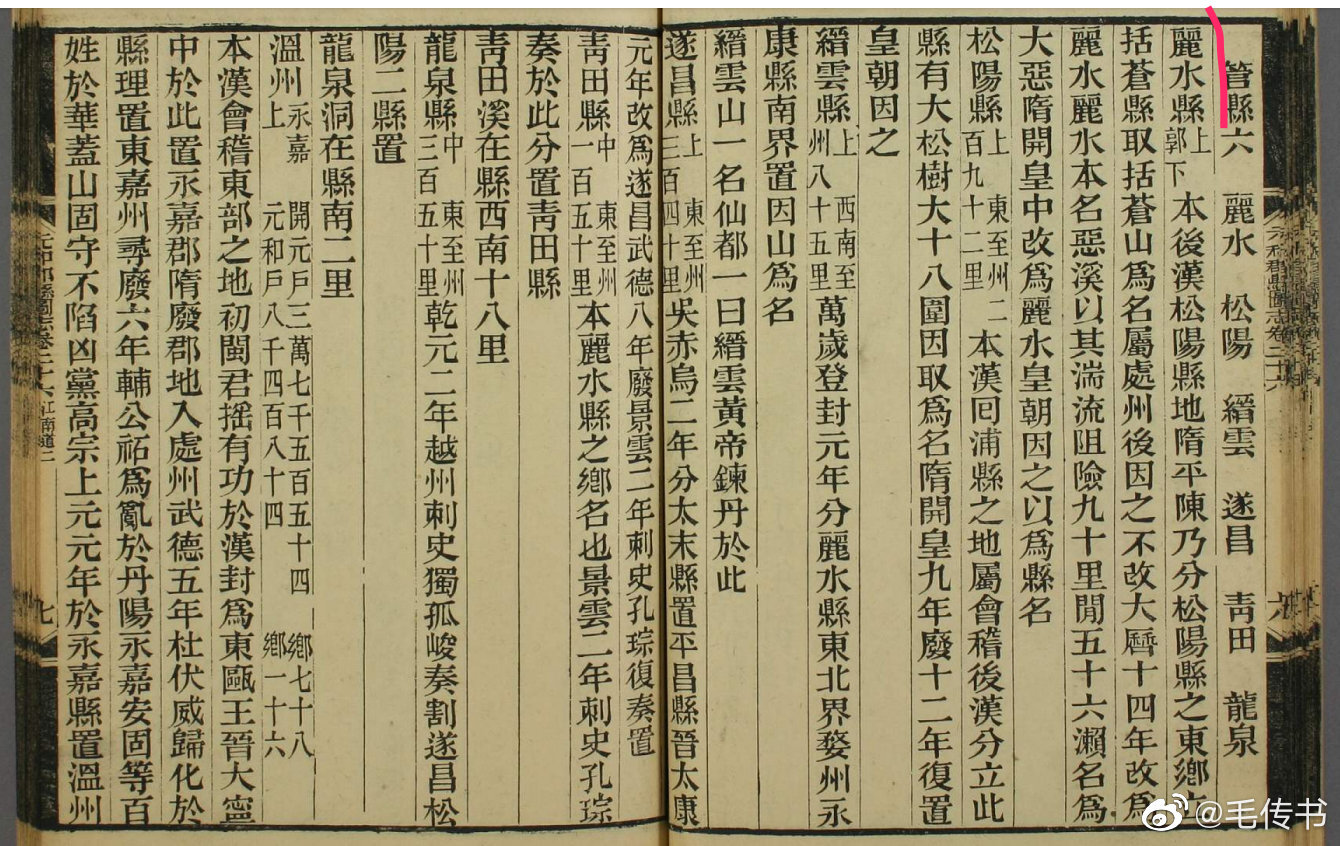 管縣六 麗水 松陽 縉雲 遂昌 靑田 龍泉
麗水縣上郭下 本後漢松陽縣地隋平陳乃分松陽縣之東鄉立
括蒼縣取括蒼山爲名屬處州後因之不改大曆十四年改爲
麗水麗水本名惡溪以其湍流阻險九十里閒五十六瀨名爲
大惡隋開皇中改爲麗水皇朝因之以爲縣名
松陽縣上東至州二百九十二里 本漢囘浦縣之地屬會稽後漢分立此
縣有大松樹大十八圍因取爲名隋開皇九年廢十二年復置
皇朝因之
縉雲縣上西南至州八十五里 萬歲登封元年分麗水縣東北界婺州永
康縣南界置因山爲名
縉雲山一名仙都一曰縉雲黃帝鍊丹於此
遂昌縣上東至州三百四十里 吳赤烏二年分太末縣置平昌縣晉太康
元年改爲遂昌武德八年廢景雲二年刺史孔琮復奏置
靑田縣中東至州一百五十里 本麗水縣之鄉名也景雲二年刺史孔琮
奏於此分置靑田縣
靑田溪在縣西南十八里
龍泉縣中東至州三百五十里 乾元二年越州刺史獨孤峻奏割遂昌松
陽二縣置
龍泉洞在縣南二里
溫州永嘉上 開元戶三萬七千五百五十四 鄉七十八 元和戶八千四百八十四 鄉一十六
本漢會稽東部之地初閩君搖有功於漢封爲東甌王晉大寧
中於此置永嘉郡隋廢郡地入處州武德五年杜伏威歸化於
縣理置東嘉州尋廢六年輔公祏爲亂於丹陽永嘉安固等百
姓於華蓋山固守不陷凶黨高宗上元元年於永嘉縣置溫州
元和郡縣圖志卷二十六
六
元和郡縣圖志卷二十六 江南道二
七
@毛传书